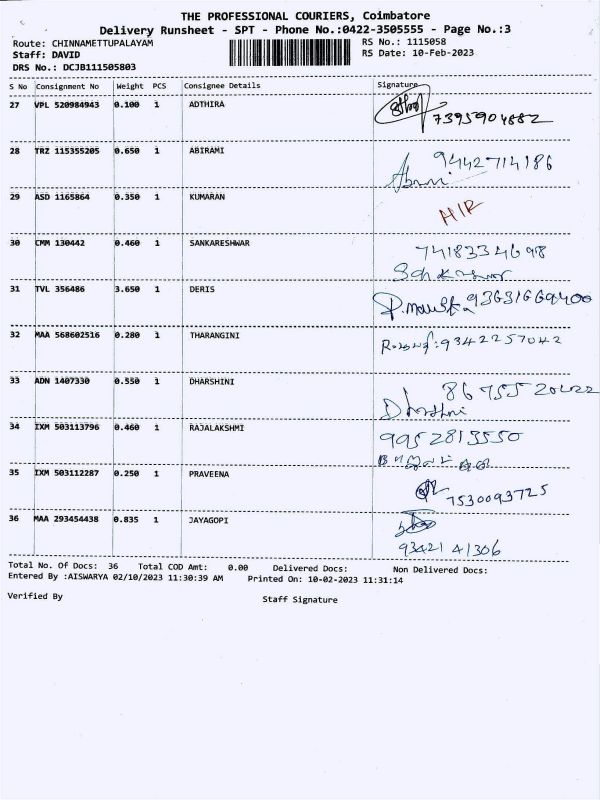 THE PROFESSIONAL COURIERS, Coimbatore
Delivery Runsheet - SPT - Phone No.:0422-3505555 - Page No.:3
Route: CHINNAMETTUPALAYAM RS No.: 1115058
Staff: DAVID RS Date: 10-Feb-2023
DRS No.: DCJB111505803
S No Consignment No Weight PCS Consignee Details Signature
27 VPL 520984943 0.100 1 ADTHIRA
7395904882
28 TRZ 115355205 0.650 1 ABIRAMI 9442714186
29 ASD 1165864 0.350 1 KUMARAN
30 CMM 130442 0.460 1 SANKARESHWAR 7418334698
31 TVL 356486 3.650 1 DERIS
32 MAA 568602516 0.280 1 THARANGINI 9342257042
33 ADN 1407330 0.550 1 DHARSHINI
Dharshini
34 IXM 503113796 0.460 1 RAJALAKSHMI 9952813550
35 IXM 503112287 0.250 1 PRAVEENA
7530093725
36 MAA 293454438 0.835 1 JAYAGOPI
93421 41306
Total No. Of Docs: 36 Total COD Amt: 0.00 Delivered Docs: Non Delivered Docs:
Entered By :AISWARYA 02/10/2023 11:30:39 AM Printed On: 10-02-2023 11:31:14
Verified By Staff Signature